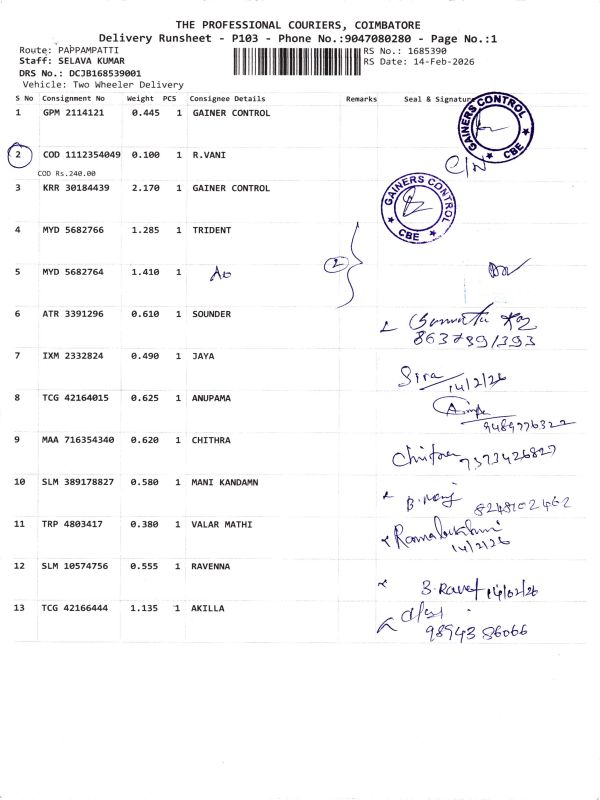 THE PROFESSIONAL COURIERS, COIMBATORE
Delivery Runsheet - P103 - Phone No.:9047080280 - Page No.:1
Route: PAPPAMPATTI RS No.: 1685390
Staff: SELAVA KUMAR RS Date: 14-Feb-2026
DRS No.: DCJB168539001
Vehicle: Two Wheeler Delivery
S No Consignment No Weight PCS Consignee Details Remarks Seal & Signature
1 GPM 2114121 0.445 1 GAINER CONTROL GAINERS CONTROL CBE
2 COD 1112354049 0.100 1 R.VANI C/N
COD Rs.240.00
3 KRR 30184439 2.170 1 GAINER CONTROL GAINERS CONTROL CBE
4 MYD 5682766 1.285 1 TRIDENT
2
5 MYD 5682764 1.410 1
6 ATR 3391296 0.610 1 SOUNDER
8637891393
7 IXM 2332824 0.490 1 JAYA
Sira 14/2/26
8 TCG 42164015 0.625 1 ANUPAMA
9489776322
9 MAA 716354340 0.620 1 CHITHRA
7373426827
10 SLM 389178827 0.580 1 MANI KANDAMN
8248102462
11 TRP 4803417 0.380 1 VALAR MATHI
14/2/26
12 SLM 10574756 0.555 1 RAVENNA
14/02/26
13 TCG 42166444 1.135 1 AKILLA
9894386066